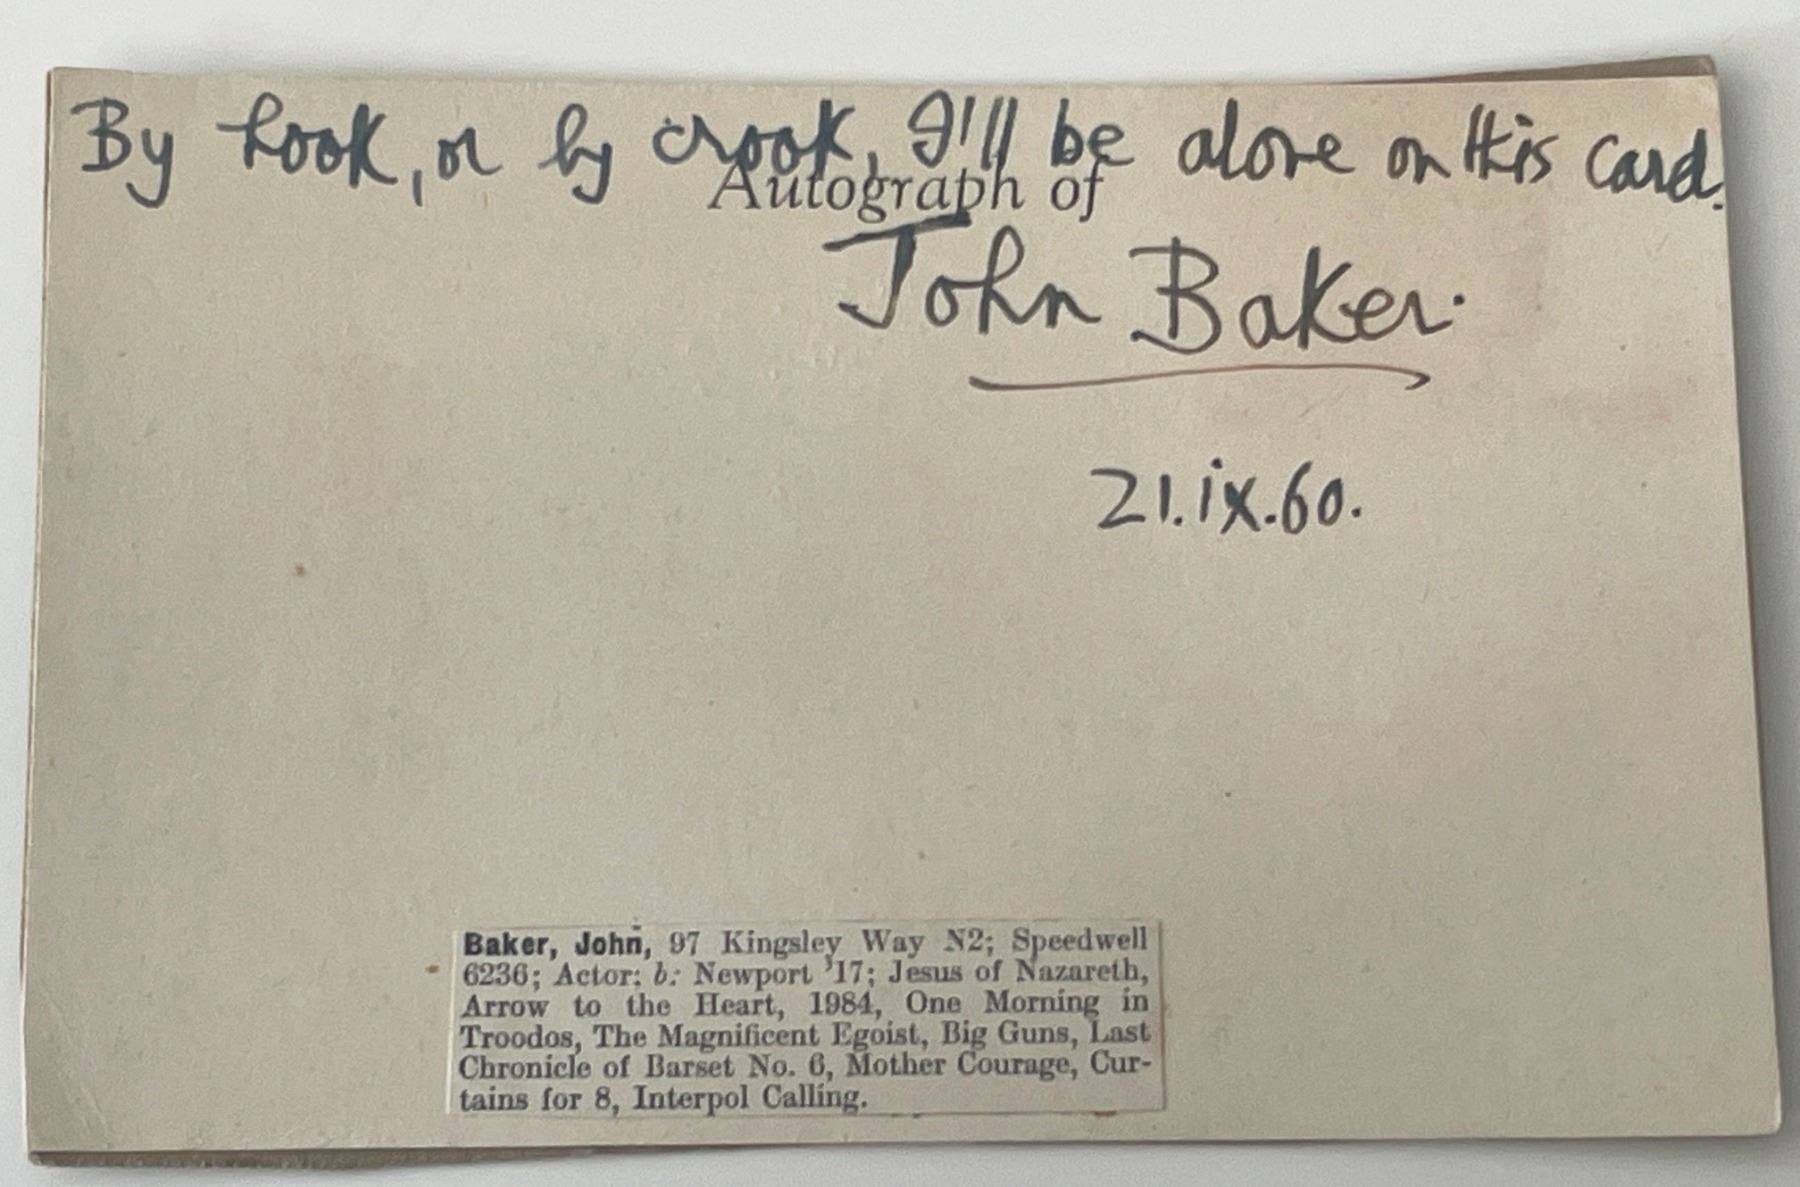 By hook, or by crook, I'll be alone on this card.
Autograph of
John Baker.
21.ix.60.
Baker, John, 97 Kingsley Way N2; Speedwell
6236; Actor; b: Newport '17; Jesus of Nazareth,
Arrow to the Heart, 1984, One Morning in
Troodos, The Magnificent Egoist, Big Guns, Last
Chronicle of Barset No. 6, Mother Courage, Cur-
tains for 8, Interpol Calling.